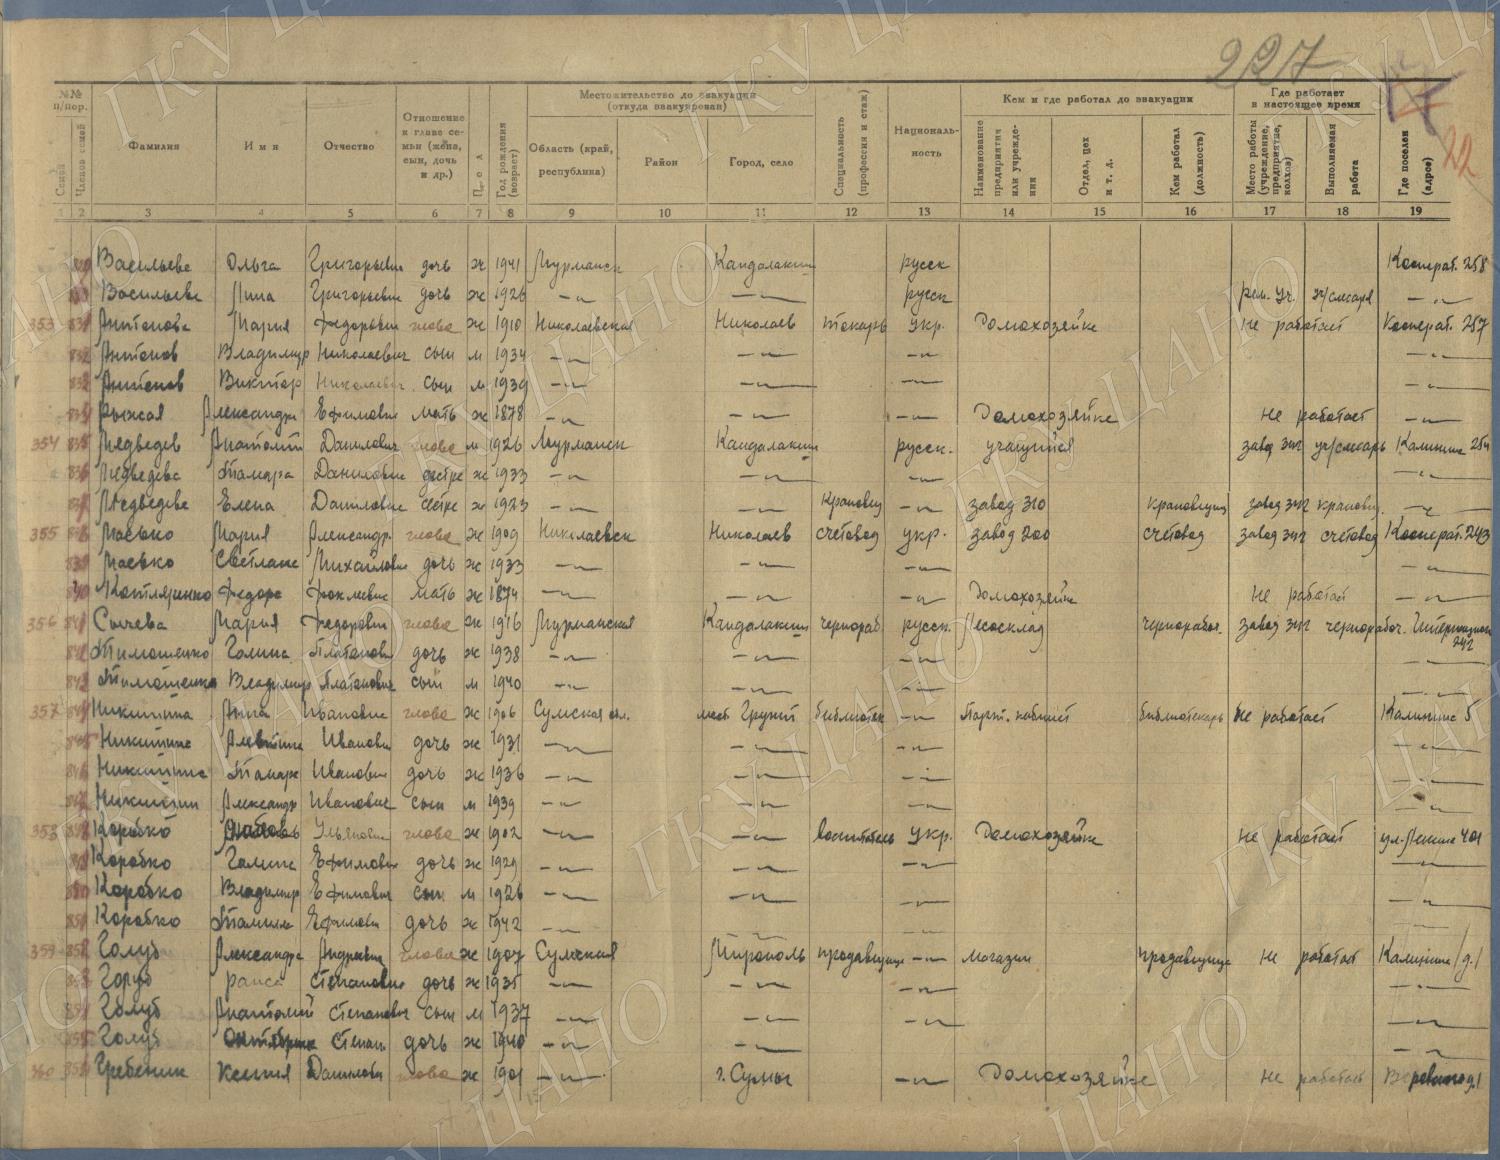 227
22
№№ п/пор.
Семей
Членов семей
Фамилия
Имя
Отчество
Отношение к главе семьи (жена, сын, дочь и др.)
Пол
Год рождения (возраст)
Местожительство до эвакуации (откуда эвакуирован)
Область (край, республика)
Район
Город, село
Специальность (профессия и стаж)
Националь-ность
Кем и где работал до эвакуации
Наименование предприятия или учрежде-ния
Отдел, цех и т. д.
Кем работал (должность)
Где работает в настоящее время
Место работы (учреждение, предприятие, колхоз)
Выполняемая работа
Где поселен (адрес)
1 2 3 4 5 6 7 8 9 10 11 12 13 14 15 16 17 18 19
Васильева Ольга Григорьевн дочь ж 1941 Мурманск Кандалакши русск Коопérat. 258
Васильева Лина Григорьевн дочь ж 1926 —〃— —〃— русск рем. уч. —〃—
353 831 Антонова Мария Федоровн глава ж 1910 Николаевская Николаев токарь укр. Домохозяйка не работает Кооперат. 257
832 Антонов Владимир Николаевич сын м 1934 —〃— —〃— —〃— —〃—
833 Антонов Виктор Николаевич сын м 1939 —〃— —〃— —〃— —〃—
834 Рыжая Александра Ефимовн мать ж 1878 —〃— —〃— —〃— Домохозяйка не работает —〃—
354 835 Медведев Анатолий Данилович глава м 1926 Мурманск Кандалакши русск. учащийся завод 342 уч/слесарь Калинина 254
836 Медведева Тамара Даниловн сестра ж 1933 —〃— —〃— —〃— —〃—
837 Медведева Елена Даниловн сестра ж 1923 —〃— —〃— крановщ —〃— завод 310 крановщик завод 342 крановщ. —〃—
355 838 Масько Мария Александр. глава ж 1909 Николаевск Николаев счетовод укр. завод 200 счетовод завод 342 счетовод Кооперат. 243
839 Масько Светлана Михайловн дочь ж 1933 —〃— —〃— —〃— —〃—
840 Котляренко Федора мать ж 1874 —〃— —〃— —〃— Домохозяйка не работает —〃—
356 841 Сычева Мария Федоровн глава ж 1916 Мурманская Кандалакши чернораб. русск. Лесосклад чернорабоч. завод 342 чернорабоч. Интернацион 242
842 Тимошенко Галина Платоновн дочь ж 1938 —〃— —〃— —〃— —〃—
843 Тимошенко Владимир Платонович сын м 1940 —〃— —〃— —〃— —〃—
357 844 Никитина Анна Ивановн глава ж 1906 Сумская обл. мест. Грунь библиотек —〃— Парт. кабинет библиотекарь не работает Калинина 5
845 Никитина Алевтина Ивановн дочь ж 1931 —〃— —〃— —〃— —〃—
846 Никитина Тамара Ивановн дочь ж 1936 —〃— —〃— —〃— —〃—
847 Никитин Александр Иванович сын м 1939 —〃— —〃— —〃— —〃—
358 848 Коробко Любовь Ульяновн глава ж 1902 —〃— —〃— воспитатель укр. Домохозяйка не работает ул. Ленина 401
849 Коробко Галина Ефимовн дочь ж 1929 —〃— —〃— —〃— —〃—
850 Коробко Владимир Ефимович сын м 1926 —〃— —〃— —〃— —〃—
851 Коробко Ефимовн дочь ж 1942 —〃— —〃— —〃— —〃—
359 852 Голуб Александра Андреевн глава ж 1907 Сумская Мирополь продавщица —〃— магазин продавщица не работает Калинина
853 Голуб Раиса Степановн дочь ж 1935 —〃— —〃— —〃— —〃—
854 Голуб Анатолий Степанович сын м 1937 —〃— —〃— —〃— —〃—
855 Голуб Октябрина Степан дочь ж 1940 —〃— —〃— —〃—
360 856 Гребеник Ксения Даниловн глава ж 1901 —〃— г. Сумы —〃— Домохозяйка не работает
ГКУ ЦАНО